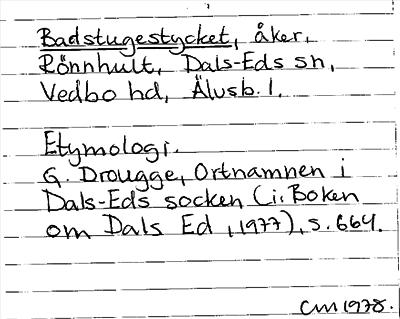 Badstugestycket, åker,
Rönnhult, Dals-Eds sn,
Vedbo hd, Älvsb. l.
Etymologi.
G. Drougge, Ortnamnen i
Dals-Eds socken (i: Boken
om Dals Ed, 1977), s. 664.
CM 1978.